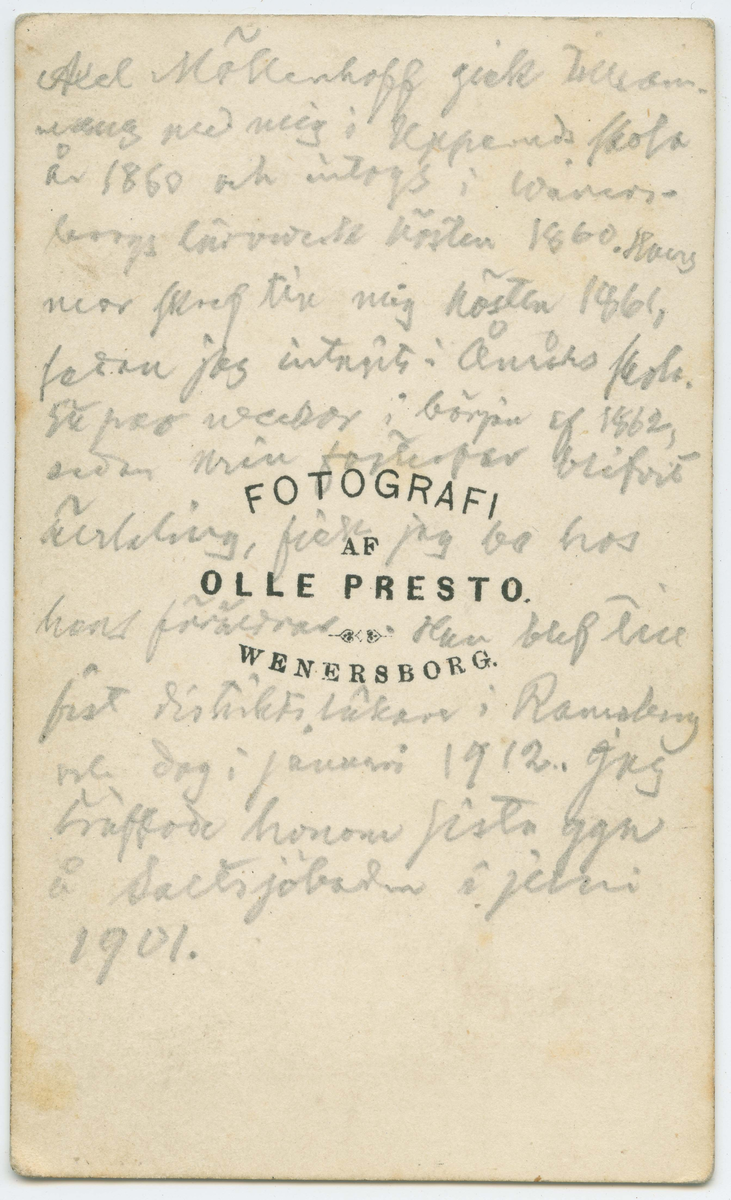 Axel Möllerhoff gick tillsam-
mans med mig i Upperuds skola
år 1860 och intogs i Wäners-
borgs läroverk hösten 1860. Hans
mor skref till mig hösten 1861,
sedan jag intagits i Åmåls skola.
Ett par veckor i början af 1862,
sedan min fosterfar blifvit
FOTOGRAFI
jag bo hos
AF
OLLE PRESTO.
hans föräldrar. Han blef till
WENERSBORG.
sist distriktsläkare i Ramsberg
och dog i januari 1912. Jag
träffade honom sista ggn
å Saltsjöbaden i juni
1901.